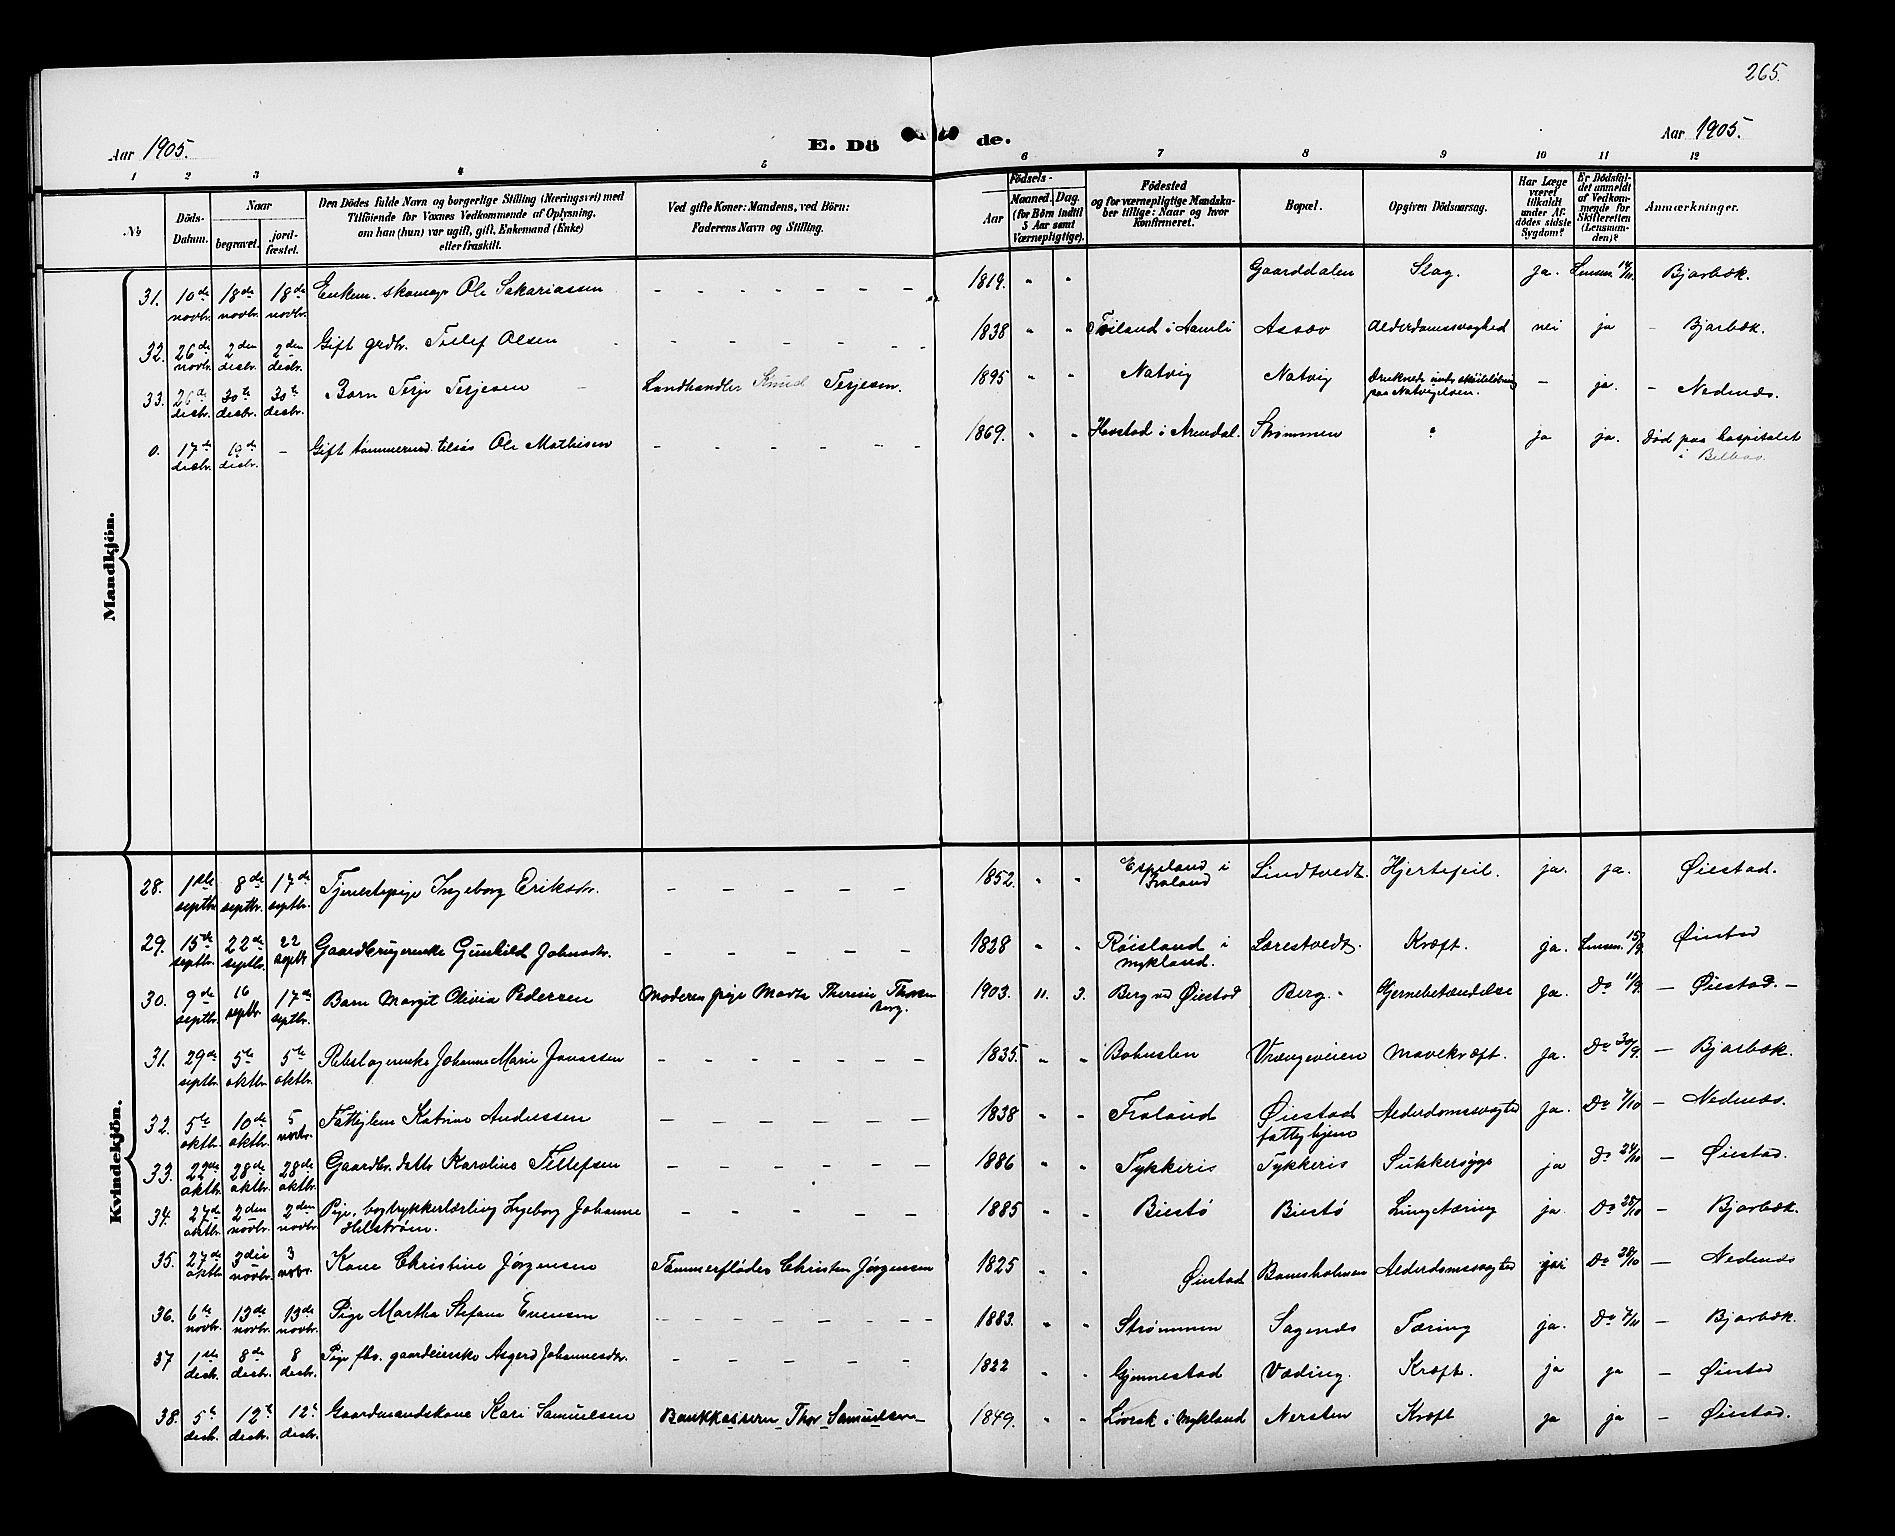 265.
Aar 1905.
E. Dö de.
Aar 1905.
1 2 3 4 5 6 7 8 9 10 11 12
No
Döds-Datum.
Naar
begravet.
jordfæstet.
Den Dödes fulde Navn og borgerlige Stilling (Næringsvei) med
Tilföiende for Voxnes Vedkommende af Oplysning,
om han (hun) var ugift, gift, Enkemand (Enke)
eller fraskilt.
Ved gifte Koner: Mandens, ved Börn:
Faderens Navn og Stilling.
Födsels-
Aar
Maaned. Dag.
(for Börn indtil
5 Aar samt
Værnepligtige).
Födested
og for værnepligtige Mandskaber tillige: Naar og hvor
Konfirmeret.
Bopæl.
Opgiven Dödsaarsag.
Har Læge
været
tilkaldt
under Afdödes sidste
Sygdom?
Er Dödsfaldet anmeldt
af Vedkommende for
Skifteretten
(Lensmanden)?
Anmærkninger.
Mandkjön.
31. 10de novbr. 18de novbr. 18de novbr. Enkem. skomagr Ole Sakariassen - - - - - - 1819. " " Gaarddalen Slag. ja. Lensm. 14/11. Bjorbæk.
32. 26de novbr. 2den desbr. 2den desbr. Gift grdbr. Tellef Olsen - - - - - 1838 " " i Aamli Assæv Alderdomssvaghed nei ja - Bjorbæk.
33. 26de desbr. 30te desbr. 30te desbr. Barn Terje Terjesen Landhandler Knud Terjesen. 1895 " " Natvig Natvig paa Natvigelven. - ja. - Nedenes.
0. 17de desbr. 19de desbr. - Gift tømmermd. tilsøs Ole Mathisen - - - - - 1869. " " i Arendal. Strømmen ? ja ja. Død paa hospitalet
i Bilbao.
Kvindekjön.
28. 1ste septbr. 8de septbr. 17de septbr. Tjenestepige Ingeborg Eriksdtr. - - - - - 1852. " " Espeland i Froland Lindtvedt. Hjertefeil. ja. ja. Øiestad.
29. 15de septbr. 22de septbr. 22 septbr Gaardbrugerenke Gunhild Johnsdtr. - - - - - 1828 " " Røisland i Mykland. Lærestvedt. Kræft. ja. Lensm. 15/9. Øiestad
30. 9de septbr. 16 septbr 17de septbr. Barn Margit Olivia Pedersen Moderen pige Marte Theresie Thorsen Berg. 1903. 11. 3. Berg ved Øiestad Berg. Hjernebetændelse ja. Do 11/9. - Øiestad. -
31. 29de septbr. 5te oktbr. 5te oktbr. Rebslagerenke Johanne Marie Jonassen - - - - - - 1835. " " Bohuslen Vrængeveien Mavekræft. ja. Do 30/9. - Bjorbæk.
32. 5te oktbr. 10de oktbr. 5 novbr. Fattiglem Katrine Anderssen - - - - - - 1838 " " Froland Øiestad fattighjem ja. Do 7/10 - Nedenes.
33. 22de oktbr. 28de oktbr. 28de oktbr. Gaardbr. dattr Karoline Tellefsen - - - - - - 1886 " " Tykkeris Tykkeris Sukkersyge ja Do 24/10 - Øiestad.
34. 27de oktbr. 2den novbr. 2den novbr. Pige, bogtrykkerlærling Ingeborg Johanne
Hellstrøm. - - - - - 1885 " " Biestø Biestø Lungetæring ja. Do 28/10 - Bjorbæk.
35. 27de oktbr. 3die novbr. 3 novbr. Kone Christine Jørgensen Tømmerfløder Christen Jørgensen 1825 " " Øiestad Bomsholmen ja Do 28/10 - Nedenes
36. 6te novbr. 13de novbr. 13de novbr. Pige Martha Stefane Evensen - - - - - - 1883. " " Strømmen Sagenes Tæring ja. Do 7/11 - Bjorbæk.
37 1ste desb. 8de desbr. 8 desbr. Pige fhv. gaardeierske Asgerd Johannesdtr. - - - - - 1822 " " Gjennestad Vading. Kræft. ja ja - Øiestad
38. 5te desb. 12te desbr. 12te desbr. Gaardmandskone Kari Samuelsen Bankkasserer Thor Samuelsen 1849. " " i Mykland Nersten Kræft ja ja - Øiestad.